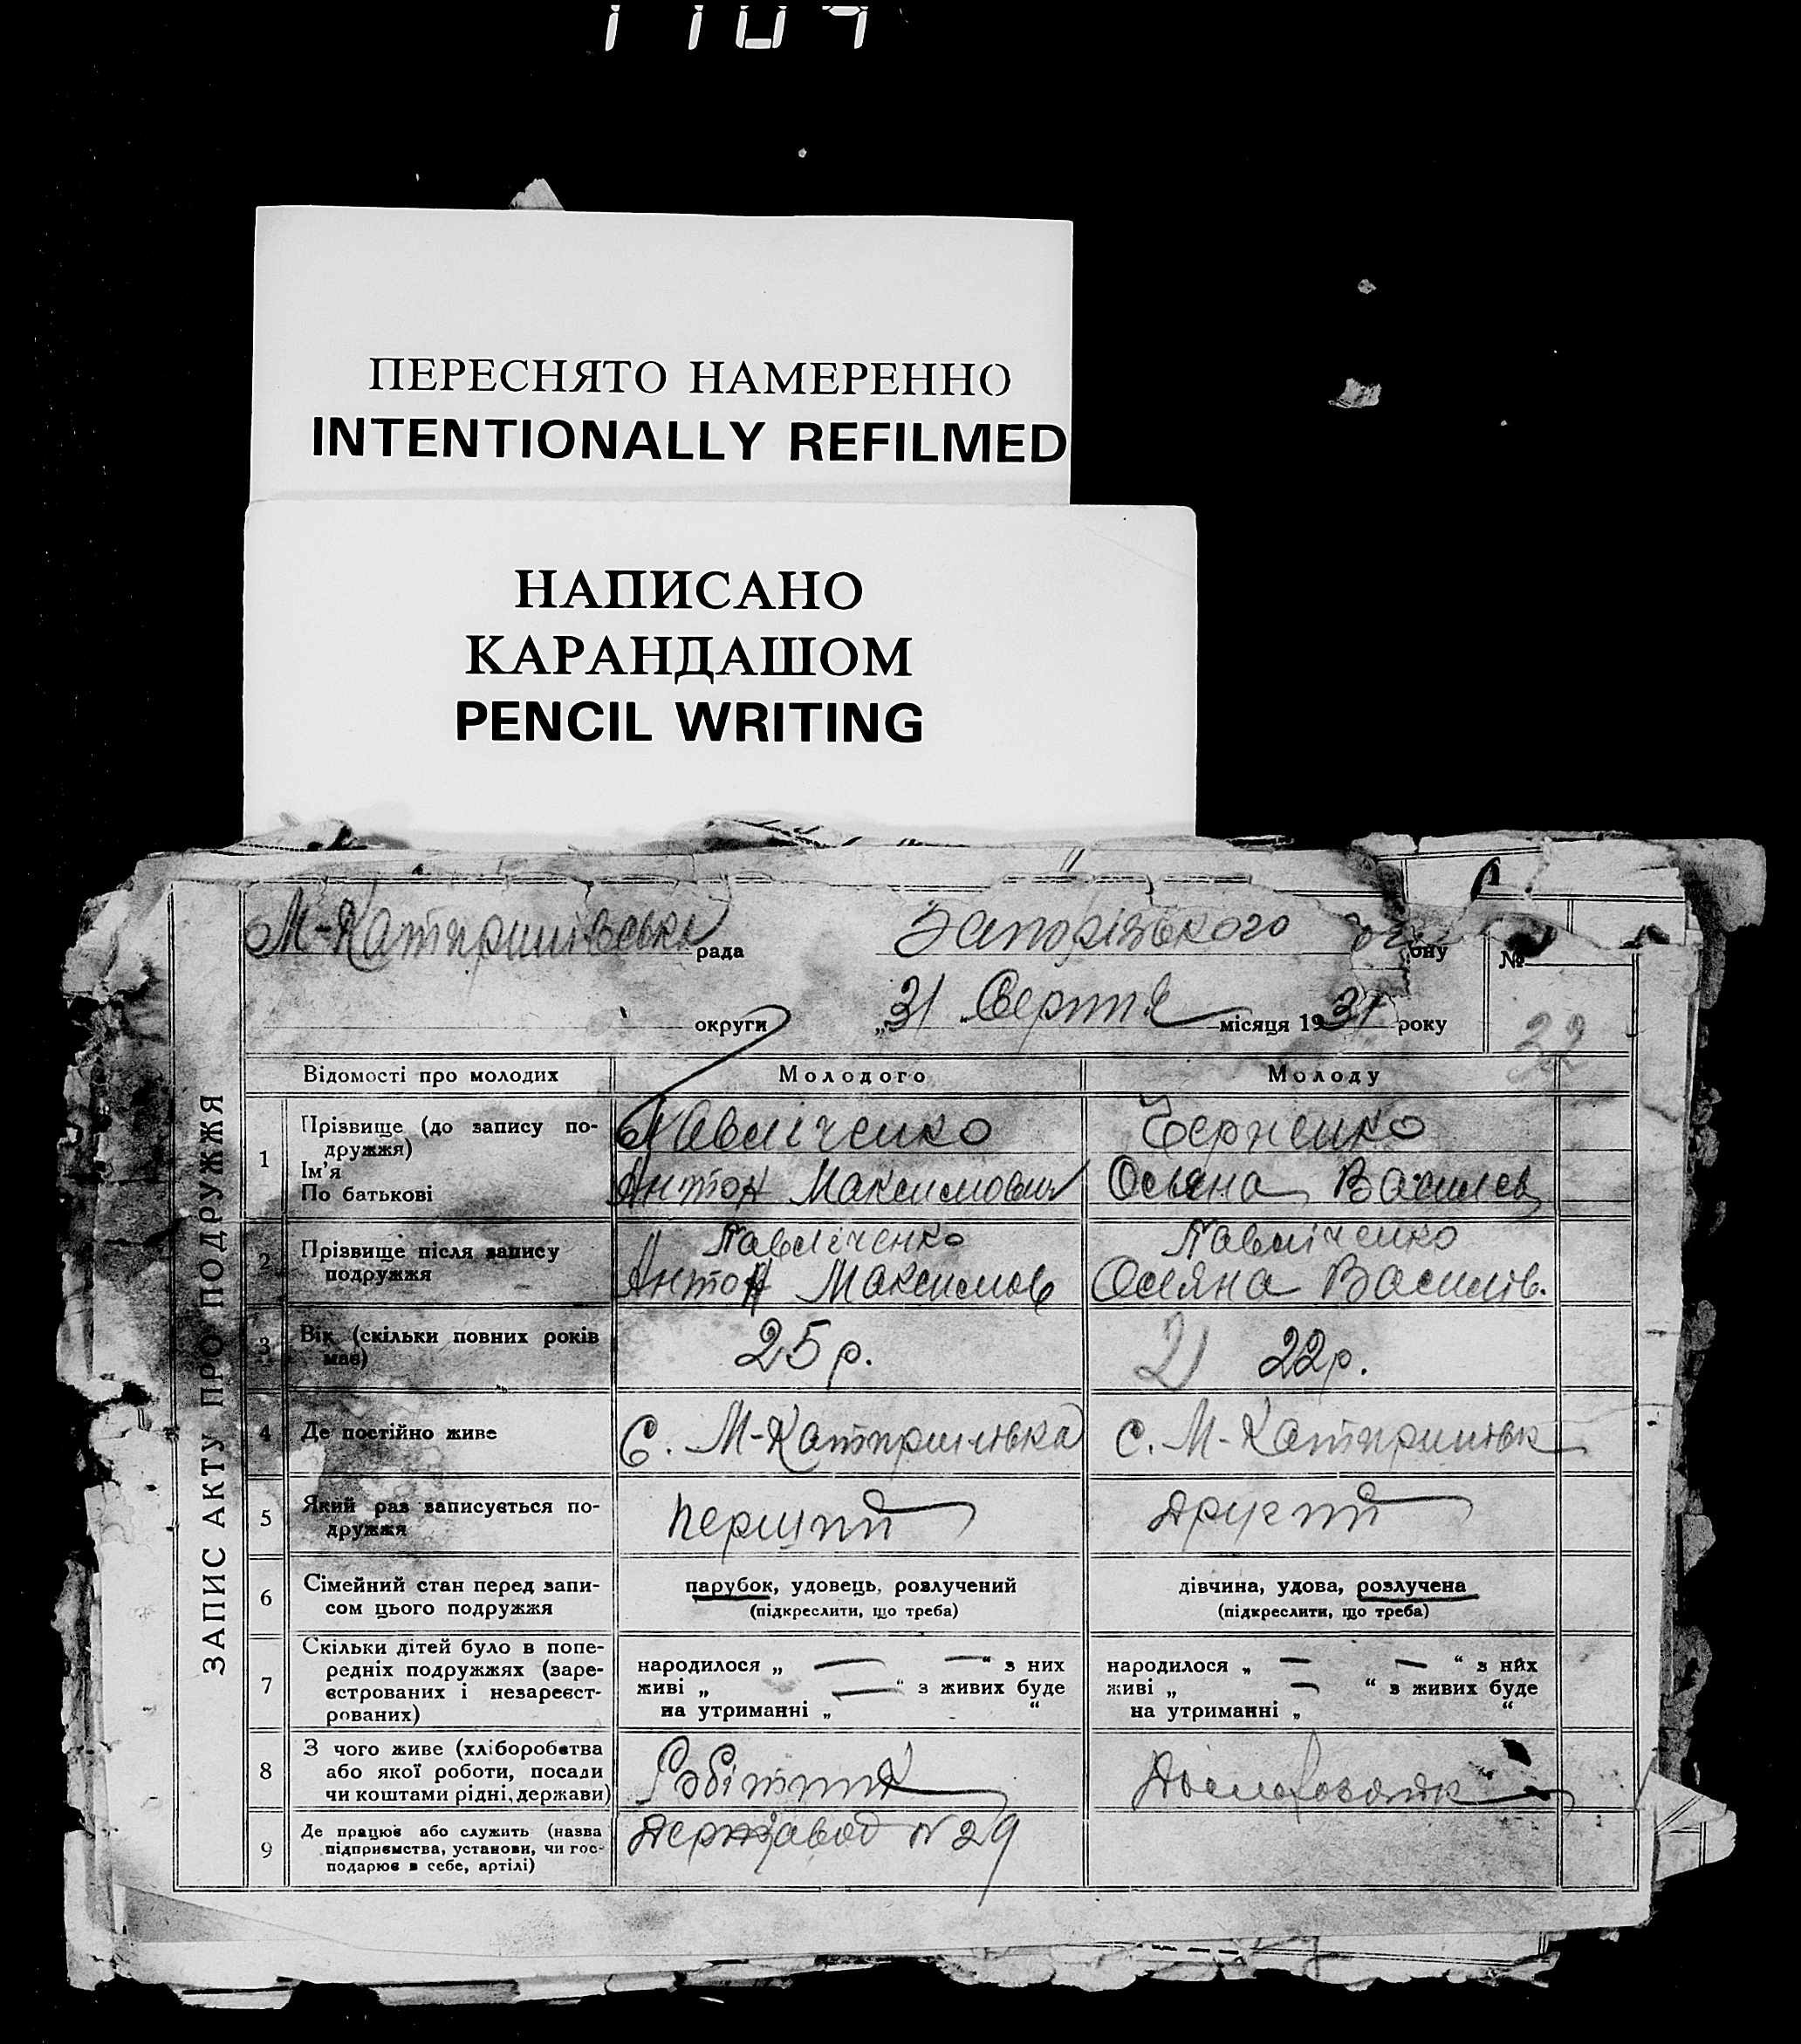 ПЕРЕСНЯТО НАМЕРЕННО
INTENTIONALLY REFILMED
НАПИСАНО
КАРАНДАШОМ
PENCIL WRITING
ЗАПИС АКТУ ПРО ПОДРУЖЖЯ
М-Катеринівська рада Запорізького ону №
округи „31 Серпня місяця 1931 року 32
Відомості про молодих Молодого Молоду
1 Прізвище (до запису подружжя) Павліченко Черненко
Ім'я
По батькові Антон Максимович Василев
2 Прізвище після запису подружжя Павліченко Павліченко
Антон Максимов Василів.
3 Вік (скільки повних років має) 25 р. 21 22 р.
4 Де постійно живе С. М-Катеринівка с. М-Катеринівк
5 Який раз записується подружжя перший другий
6 Сімейний стан перед записом цього подружжя парубок, удовець, розлучений дівчина, удова, розлучена
(підкреслити, що треба) (підкреслити, що треба)
7 Скільки дітей було в попередніх подружжях (зареєстрованих і незареєстрованих) народилося „ — — “ з них народилося „ — — “ з них
живі „ — “ з живих буде живі „ — “ з живих буде
на утриманні „ “ на утриманні „ “
8 З чого живе (хліборобства або якої роботи, посади чи коштами рідні, держави) Робітник
9 Де працює або служить (назва підприємства, установи, чи господарює в себе, артілі) Держзавод N 29